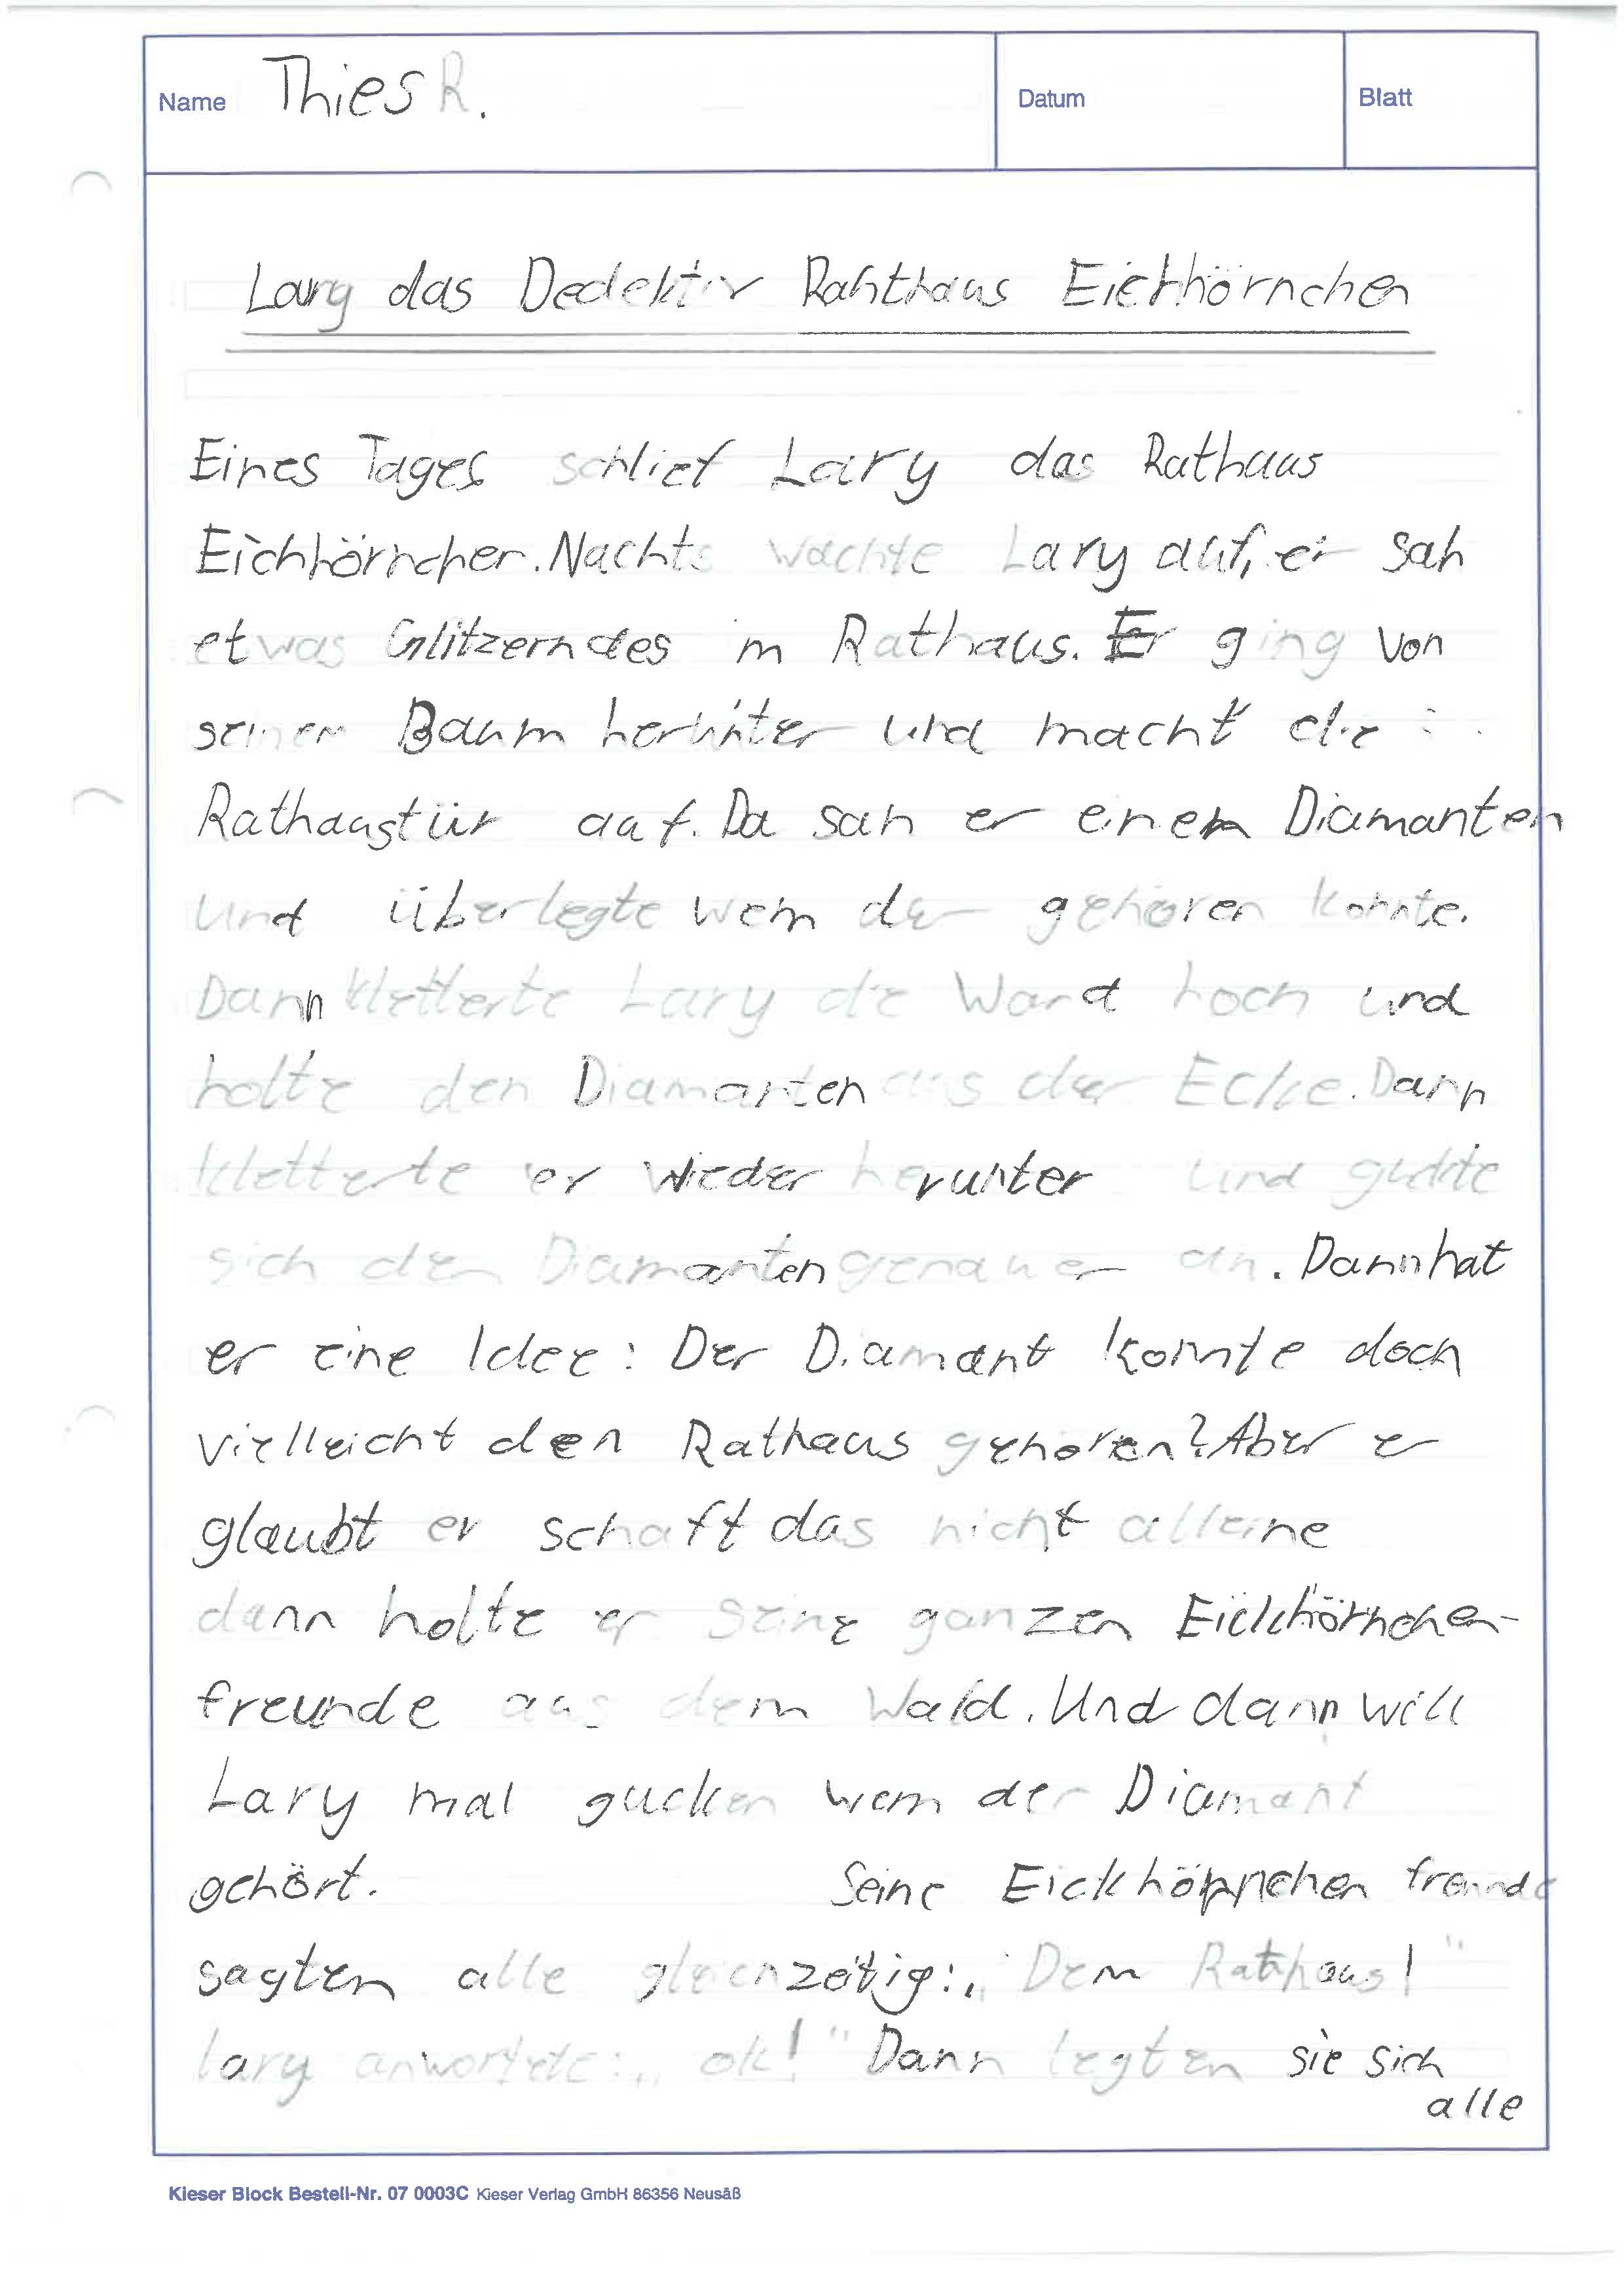 Name Thies R. Datum Blatt
Lary das Dedektiv Rahthaus Eichhörnchen
Eines Tages schlief Lary das Rathaus
Eichhörnchen. Nachts wachte Lary auf, er sah
etwas Glitzerndes im Rathaus. Er ging von
seinem Baum herunter und macht die
Rathaustür auf. Da sah er einen Diamanten
und überlegte wem der gehören konnte.
Dann kletterte Lary die Wand hoch und
holte den Diamanten aus der Ecke. Dann
kletterte er wieder herunter und guckte
sich den Diamanten genauer an. Dann hat
er eine Idee: Der Diamant konnte doch
vielleicht den Rathaus gehören? Aber er
glaubt er schaft das nicht alleine
dann holte er seine ganzen Eickhörnchen-
freunde aus dem Wald. Und dann will
Lary mal gucken wem der Diamant
gehört. Seine Eickhörnchen freunde
sagten alle gleichzeitig: „Dem Rathaus!"
lary anwortete: „ok!" Dann legten sie sich
alle
Kieser Block Bestell-Nr. 07 0003C Kieser Verlag GmbH 86356 Neusäß